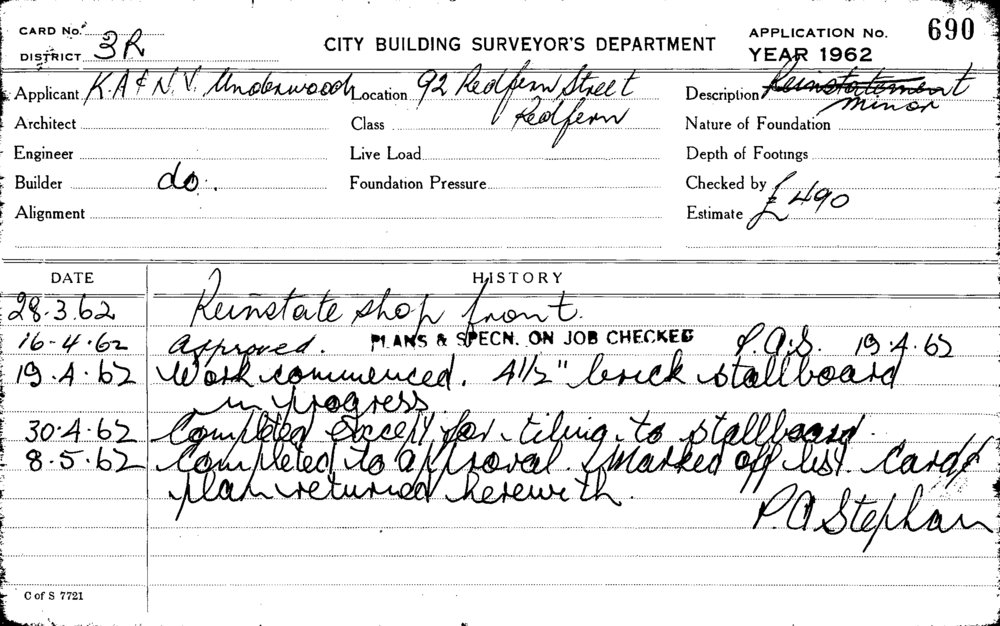 CARD No. CITY BUILDING SURVEYOR'S DEPARTMENT APPLICATION No. 690
DISTRICT 3R YEAR 1962
Applicant K.A & N.V. Underwood Location 92 Redfern Street Description Reinstatement
Redfern minor
Architect Class Nature of Foundation
Engineer Live Load Depth of Footings
Builder do. Foundation Pressure Checked by
Alignment Estimate £490
DATE HISTORY
28.3.62 Reinstate shop front.
16-4-62 Approved. PLANS & SPECN. ON JOB CHECKED P.A.S. 19.4.62
19.4.62 Work commenced. 4 1/2" brick stallboard
in progress
30.4.62 Completed except for tiling to stallboard.
8.5.62 Completed to approval. Marked off list. Card &
plan returned herewith.
P.A Stephan
C of S 7721